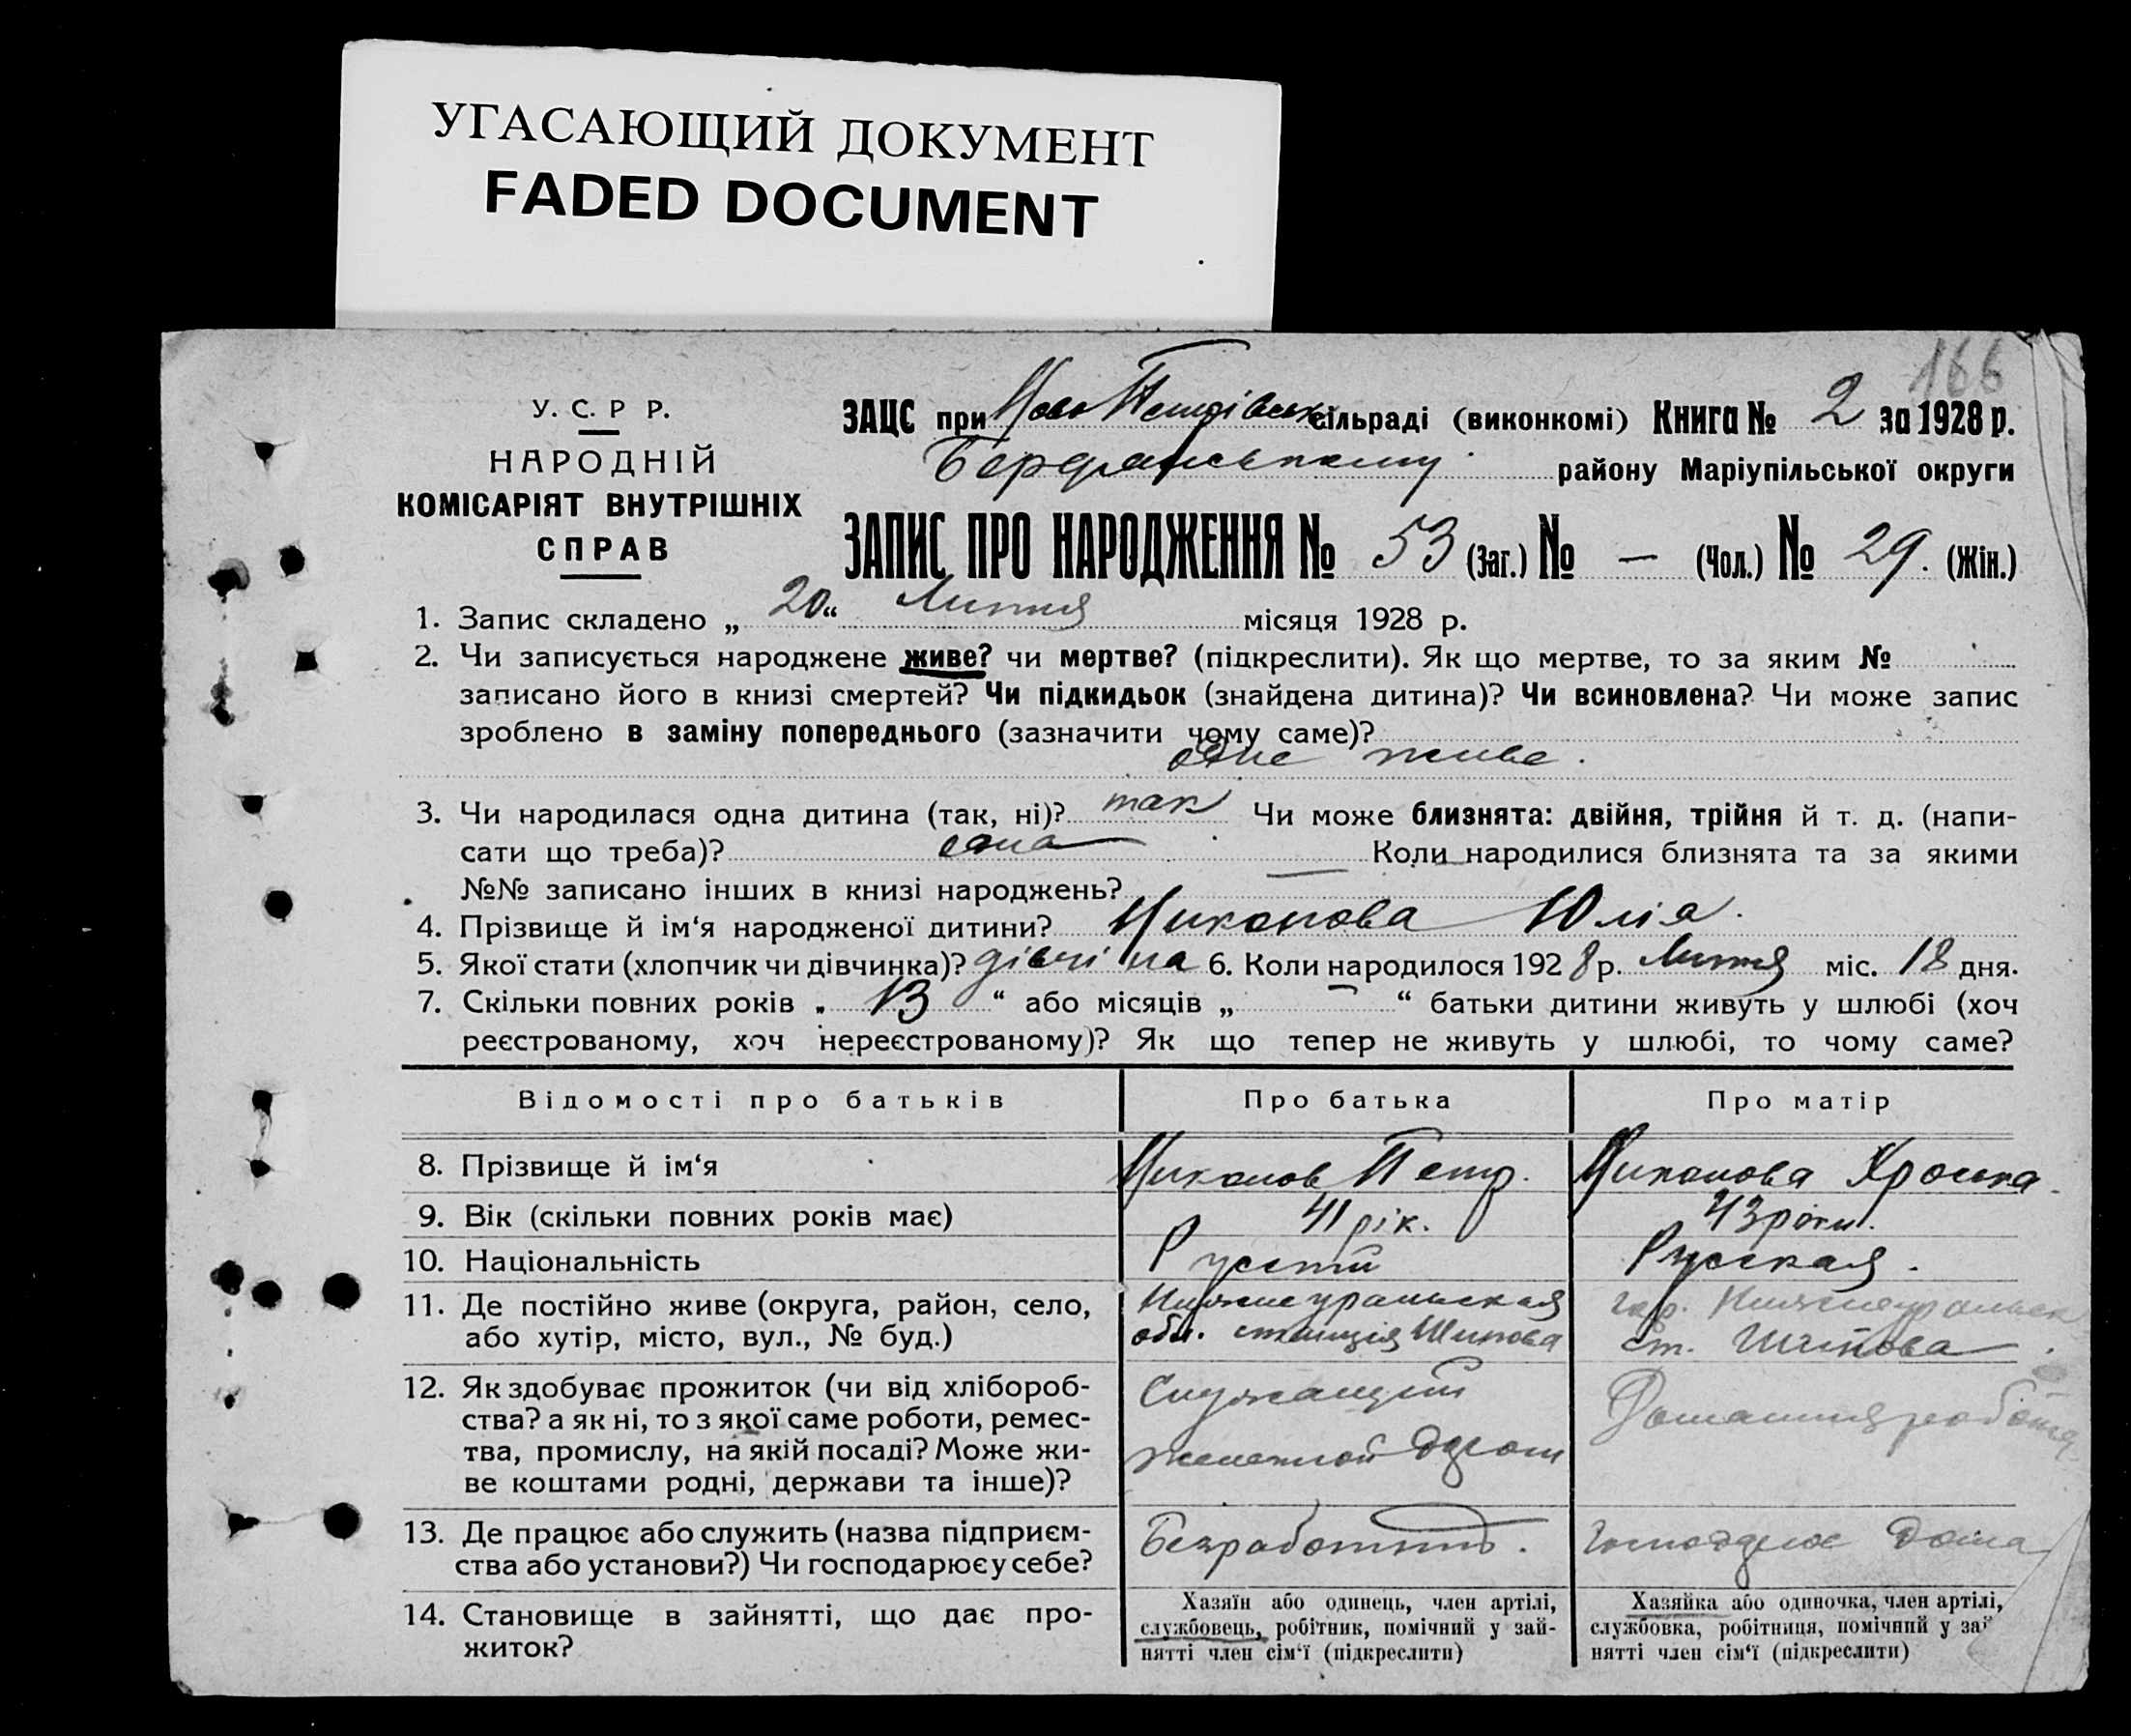 УГАСАЮЩИЙ ДОКУМЕНТ
FADED DOCUMENT
166
У. С. Р Р.
НАРОДНІЙ
КОМІСАРІЯТ ВНУТРІШНІХ
СПРАВ
ЗАЦС при Ново сільраді (виконкомі) Книга № 2 за 1928 р.
Бердянському району Маріупільської округи
ЗАПИС ПРО НАРОДЖЕННЯ № 53 (Заг.) № — (Чол.) № 29. (Жін.)
1. Запис складено „ 20 “ місяця 1928 р.
2. Чи записується народжене живе? чи мертве? (підкреслити). Як що мертве, то за яким №
записано його в книзі смертей? Чи підкидьок (знайдена дитина)? Чи всиновлена? Чи може запис
зроблено в заміну попереднього (зазначити чому саме)?
одне живе.
3. Чи народилася одна дитина (так, ні)? так Чи може близнята: двійня, трійня й т. д. (напи-
сати що треба)? одна Коли народилися близнята та за якими
№№ записано інших в книзі народжень? —
4. Прізвище й ім‘я народженої дитини? Юлія.
5. Якої стати (хлопчик чи дівчинка)? дівчина 6. Коли народилося 1928 р. міс. 18 дня.
7. Скільки повних років „ 13 “ або місяців „ — “ батьки дитини живуть у шлюбі (хоч
реєстрованому, хоч нереєстрованому)? Як що тепер не живуть у шлюбі, то чому саме?
Відомості про батьків Про батька Про матір
8. Прізвище й ім‘я Петр.
9. Вік (скільки повних років має) 41 рік. 43 роки.
10. Національність Русский Русская.
11. Де постійно живе (округа, район, село,
або хутір, місто, вул., № буд.)
Нижнеуральская
обл. станція Шипова
ст. Шипова.
12. Як здобуває прожиток (чи від хлібороб-
ства? а як ні, то з якої саме роботи, ремес-
тва, промислу, на якій посаді? Може жи-
ве коштами родні, держави та інше)?
Служащий
железной дороги
Домашня робота
13. Де працює або служить (назва підприєм-
ства або установи?) Чи господарює у себе?
Безработный.
дома
14. Становище в зайнятті, що дає про-
житок?
Хазяїн або одинець, член артілі,
службовець, робітник, помічний у зай-
нятті член сім‘ї (підкреслити)
Хазяйка або одиночка, член артілі,
службовка, робітниця, помічний у зай
нятті член сім‘ї (підкреслити)